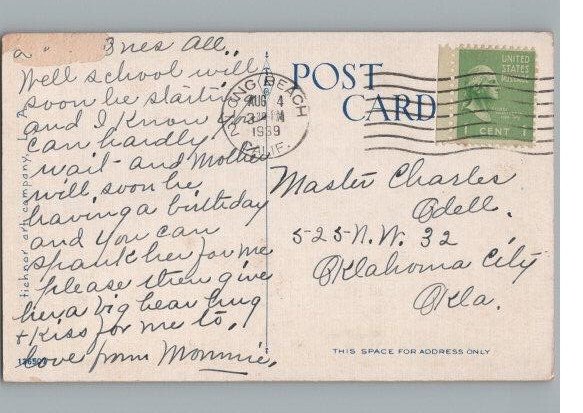 Ones all..
Well school will
soon be startin
and I know you
can hardly
wait - and Mother
will soon be
having a birthday
and you can
spank her for me
please then give
her a big bear hug
+ kiss for me to,
love from Mommie,
tichnor art company, L. A.
136502
LONG BEACH
AUG 4
1939
CALIF.
POST
CARD
UNITED
STATES
POSTAGE
1 CENT 1
Master Charles
Odell.
525 N.W. 32
Oklahoma City
Okla.
THIS SPACE FOR ADDRESS ONLY